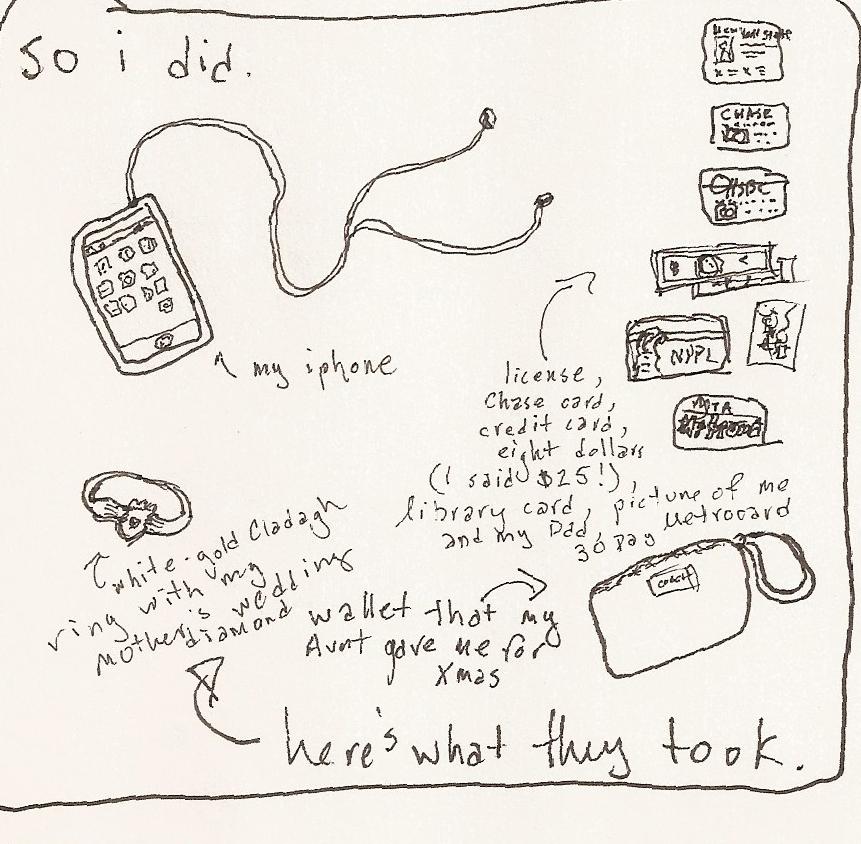 so i did.
New York State
CHASE
HSBC
$
NYPL
MTA
my iphone
license,
Chase card,
credit card,
eight dollars
(I said $25!),
library card, picture of me
and my Dad,
30 Day Metrocard
white-gold Cladagh
ring with my
mother's wedding
diamond
wallet that my
Aunt gave me for
Xmas
COACH
here's what they took.